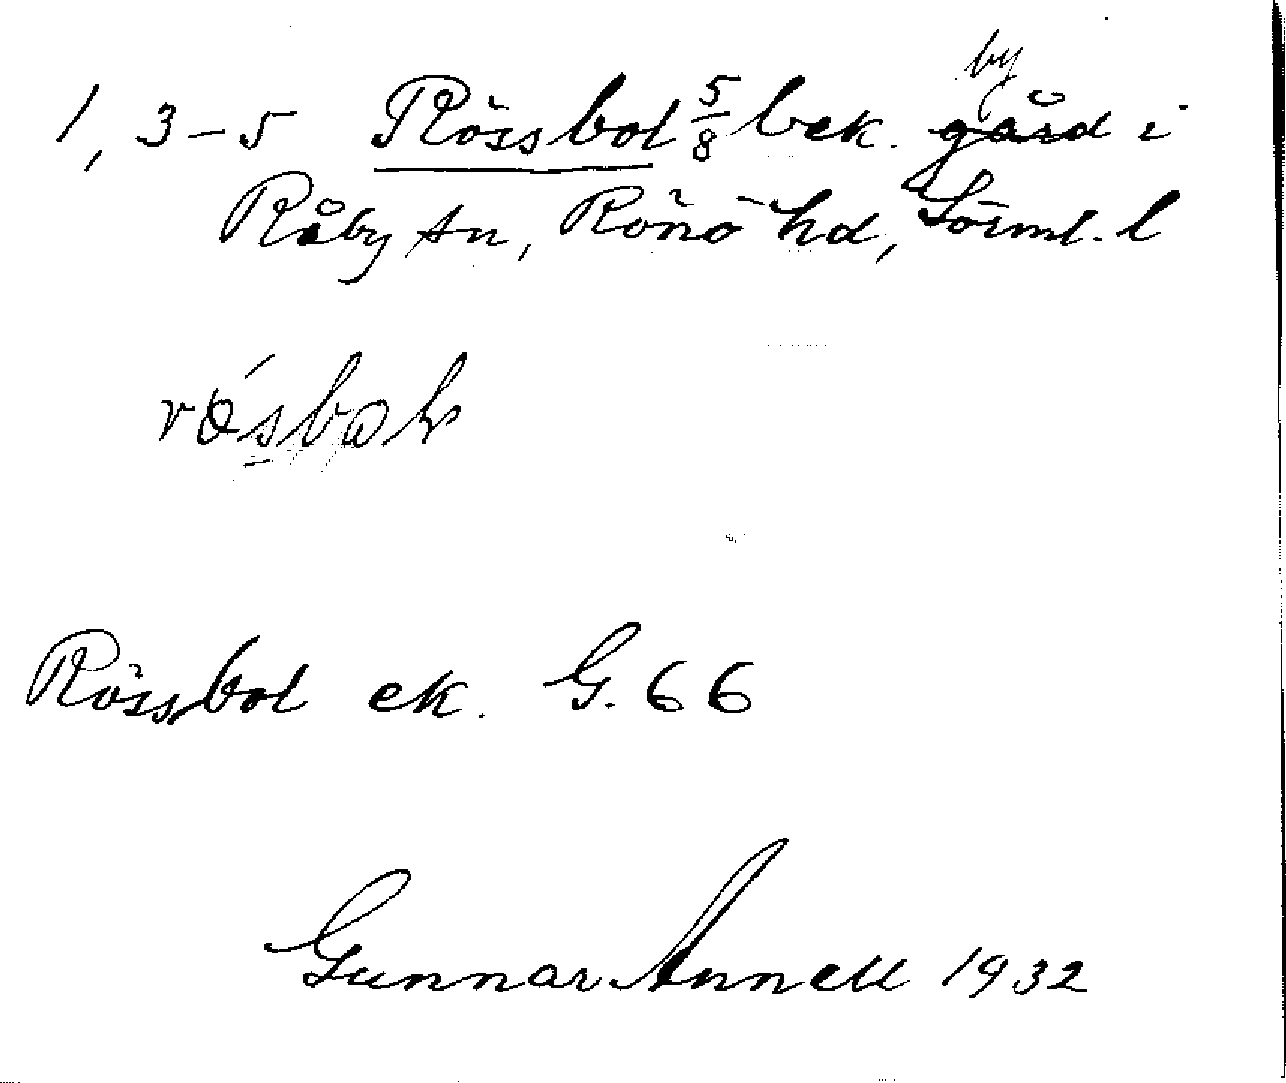 1, 3-5 Rössbol 5/8 bek. by gård i
Råby sn, Rönö hd, Sörml. l
Rössbol ek. G. 66
Gunnar Annell 1932